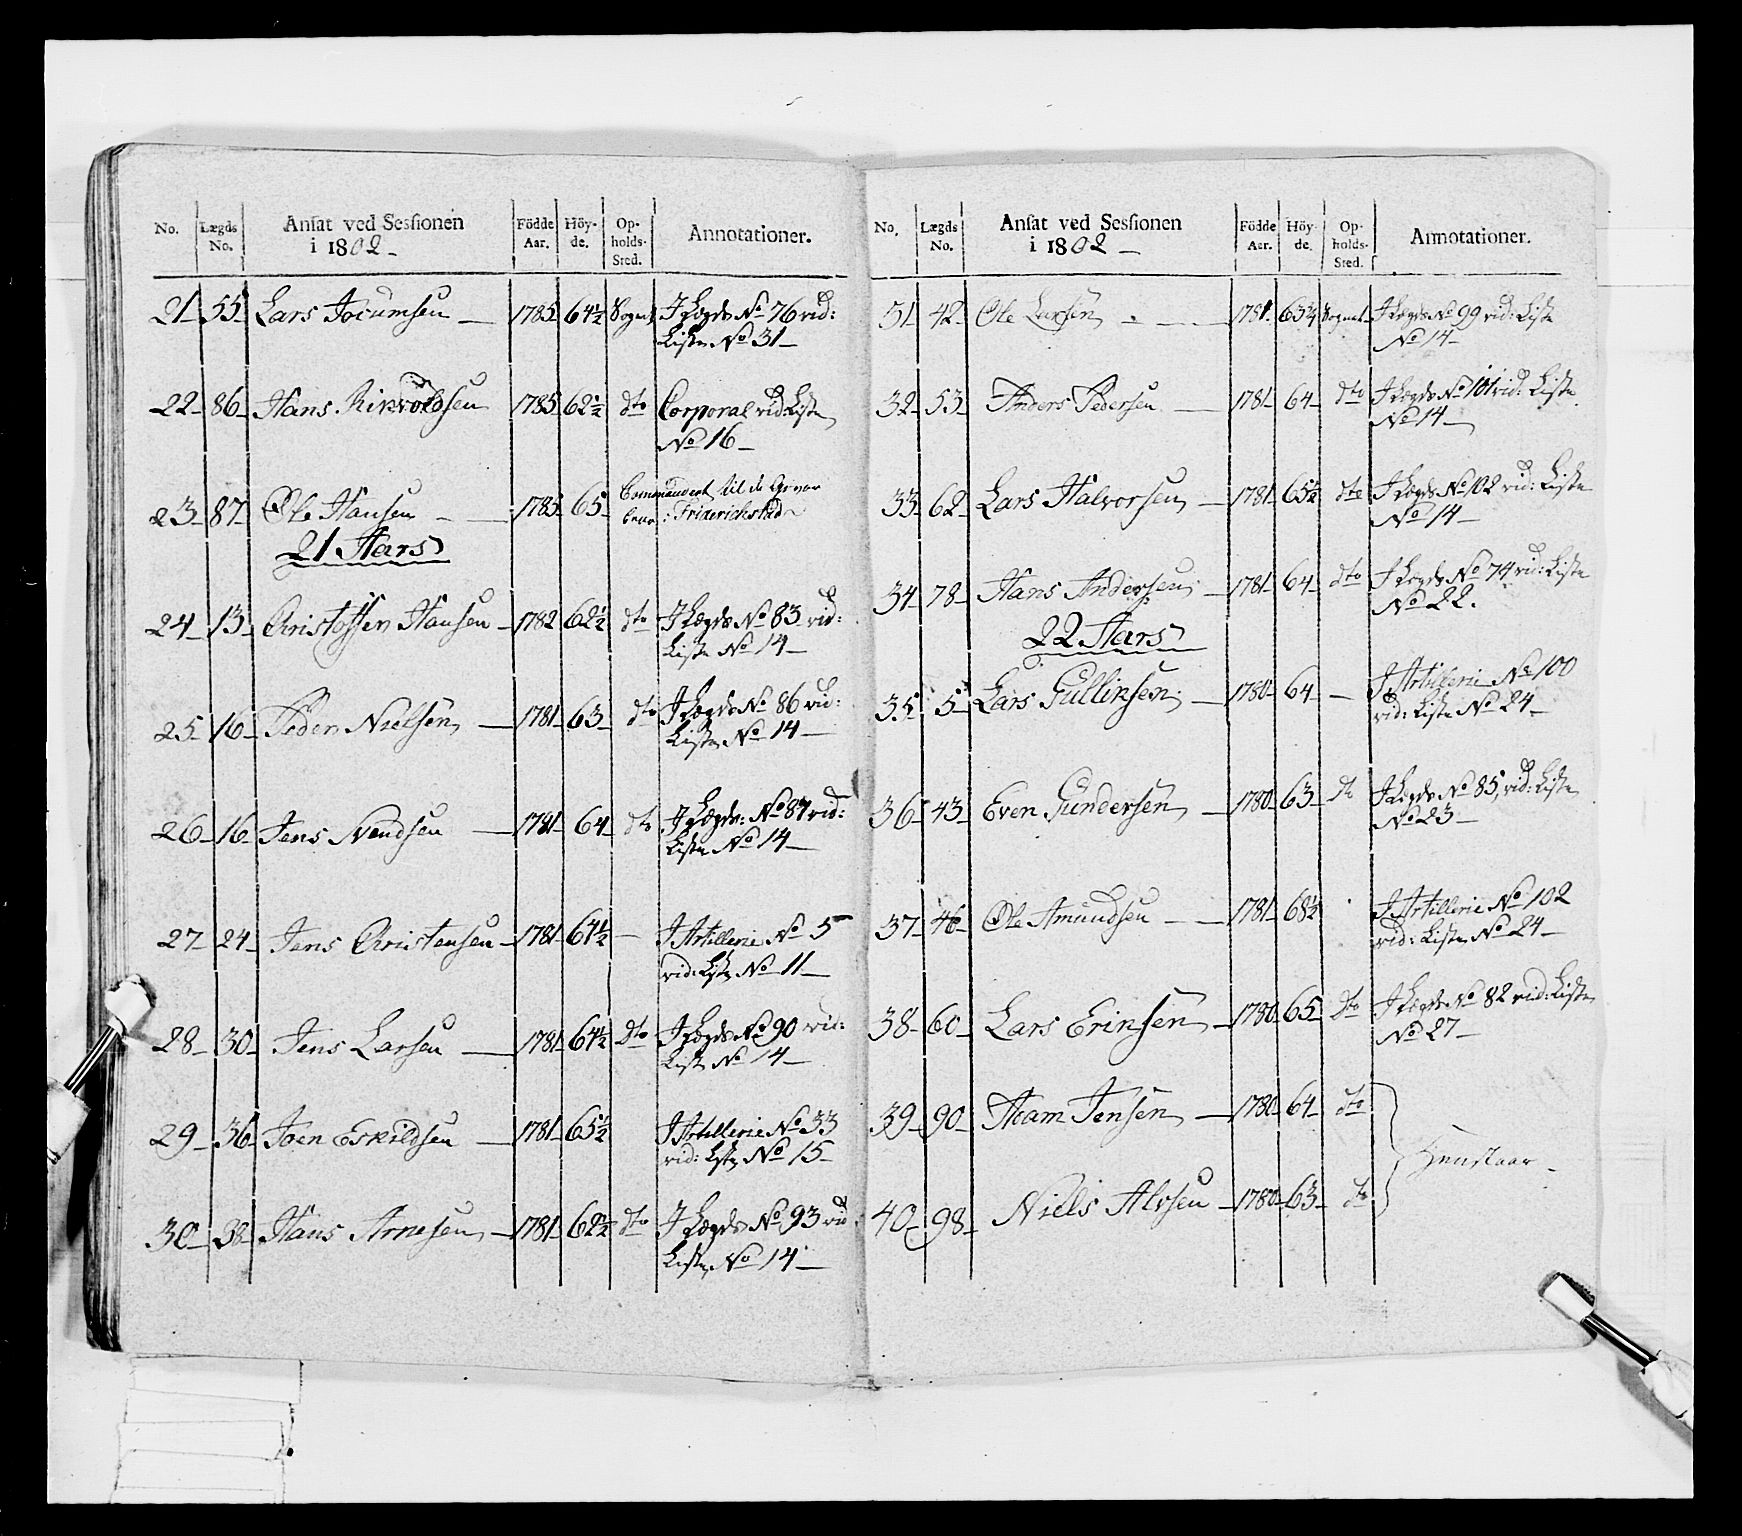 No. Lægds No. Ansat ved Sessionen i 1802 - Födde Aar. Höy-de. Op-holds-Sted. Annotationer.
21 - 55 - Lars Jocumsen - 1785 - 64½ Sognet J Lægds No 76 vid:
Liste No 31 -
22 - 86 - Hans 1785 - 62½ dto Corporal vid: Liste
No 16 -
23 - 87 - Ole Hansen - - 1785 - 65 - Commanderet til de
Friderichstad
21 Aars
24 - 13 - Christoffer Hansen - 1782 62½ dto J Lægds No 83 vid:
Liste No 14 -
25 - 16 - Peder Nielsen - 1781 - 63 - dto J Lægds No 86 vid:
Liste No 14 -
26 - 16 - Jens Svendsen - 1781 - 64 - dto J Lægds: No 87 vid:
Liste No 14 -
27 - 24 - Jens Christensen - 1781 - 64½ - J Artillerie No 5
vid: Liste No 11 -
28 - 30 - Jens Larsen - 1781 - 64½ dto J Lægds No 90 vid:
Liste No 14 -
29 - 36 - Joen Eskildsen - 1781 - 65½ J Artillerie No 33
vid: Liste No 15 -
30 - 38 - Hans Arnesen - 1781 - 62½ dto J Lægds No 93 vid
Liste No 14 -
No. Lægds No. Ansat ved Sessionen i 1802 - Födde Aar. Höy-de. Op-holds-Sted. Annotationer.
31 - 42 - Ole Larsen - 1781 - Sognet J Lægds No 99 vid: Liste
No 14 -
32 - 53 - Anders Pedersen - 1781 - 64 - dto J Lægds No 101 vid: Liste
No 14 -
33 - 62 - Lars Halvorsen - 1781 - 65½ dto J Lægds No 102 vid: Liste
No 14 -
34 - 78 - Hans Andersen - 1781 - 64 - dto J Lægds No 74 vid: Liste
No 22.
22 Aars
35 - 5 - Lars Gullicksen - 1780 - 64 - - J Artillerie No 100
vid: Liste No 24 -
36 - 43 - Even Gundersen - 1780 - 63 - dto J Lægds No 85, vid: Liste
No 23 -
37 - 46 - Ole Amundsen - - 1781 - 68½ J Artillerie No 102
vid: Liste No 24 -
38 - 60 - Lars Ericksen - 1780 - 65 - dto J Lægds No 82 vid: Liste
No 27 -
39 - 90 - Adam Jensen - 1780 - 64 - dto
Henstaar -
40 - 98 - Niels Alvsen - 1780 - 63 - dto